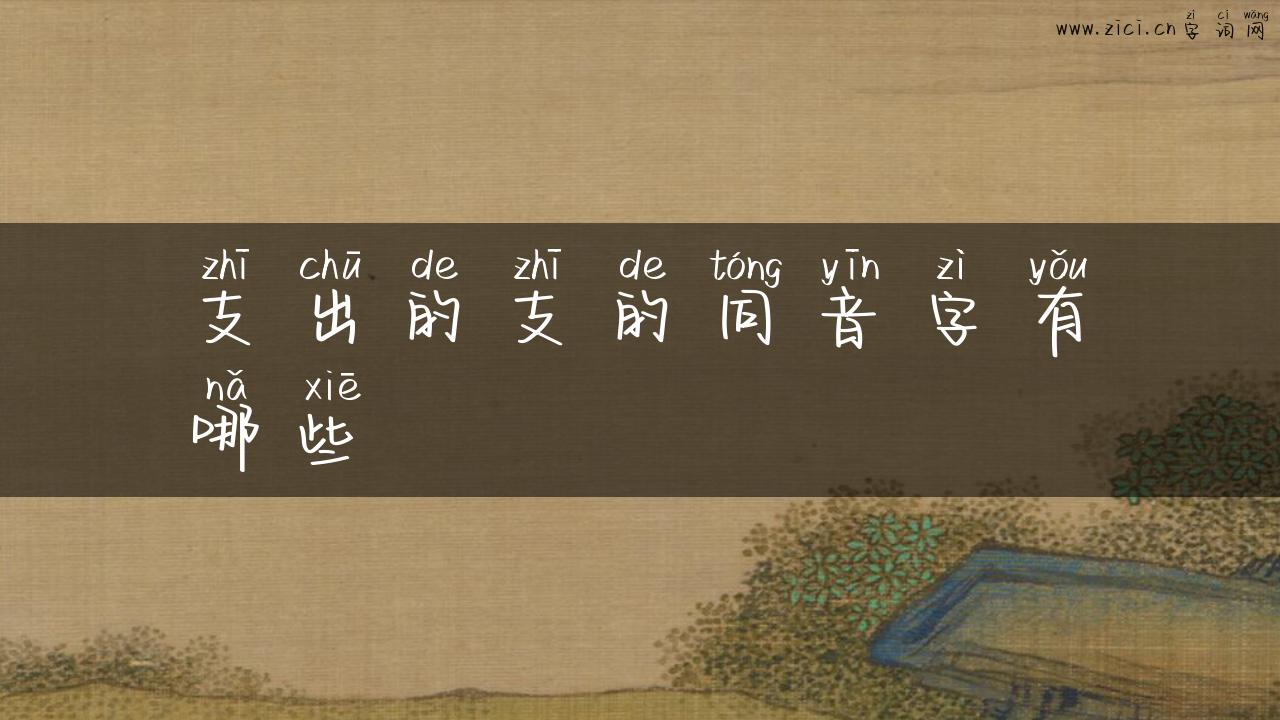 zì cí wǎng
www.zici.cn 字 词 网
zhī chū de zhī de tóng yīn zì yǒu
支 出 的 支 的 同 音 字 有
nǎ xiē
哪 些